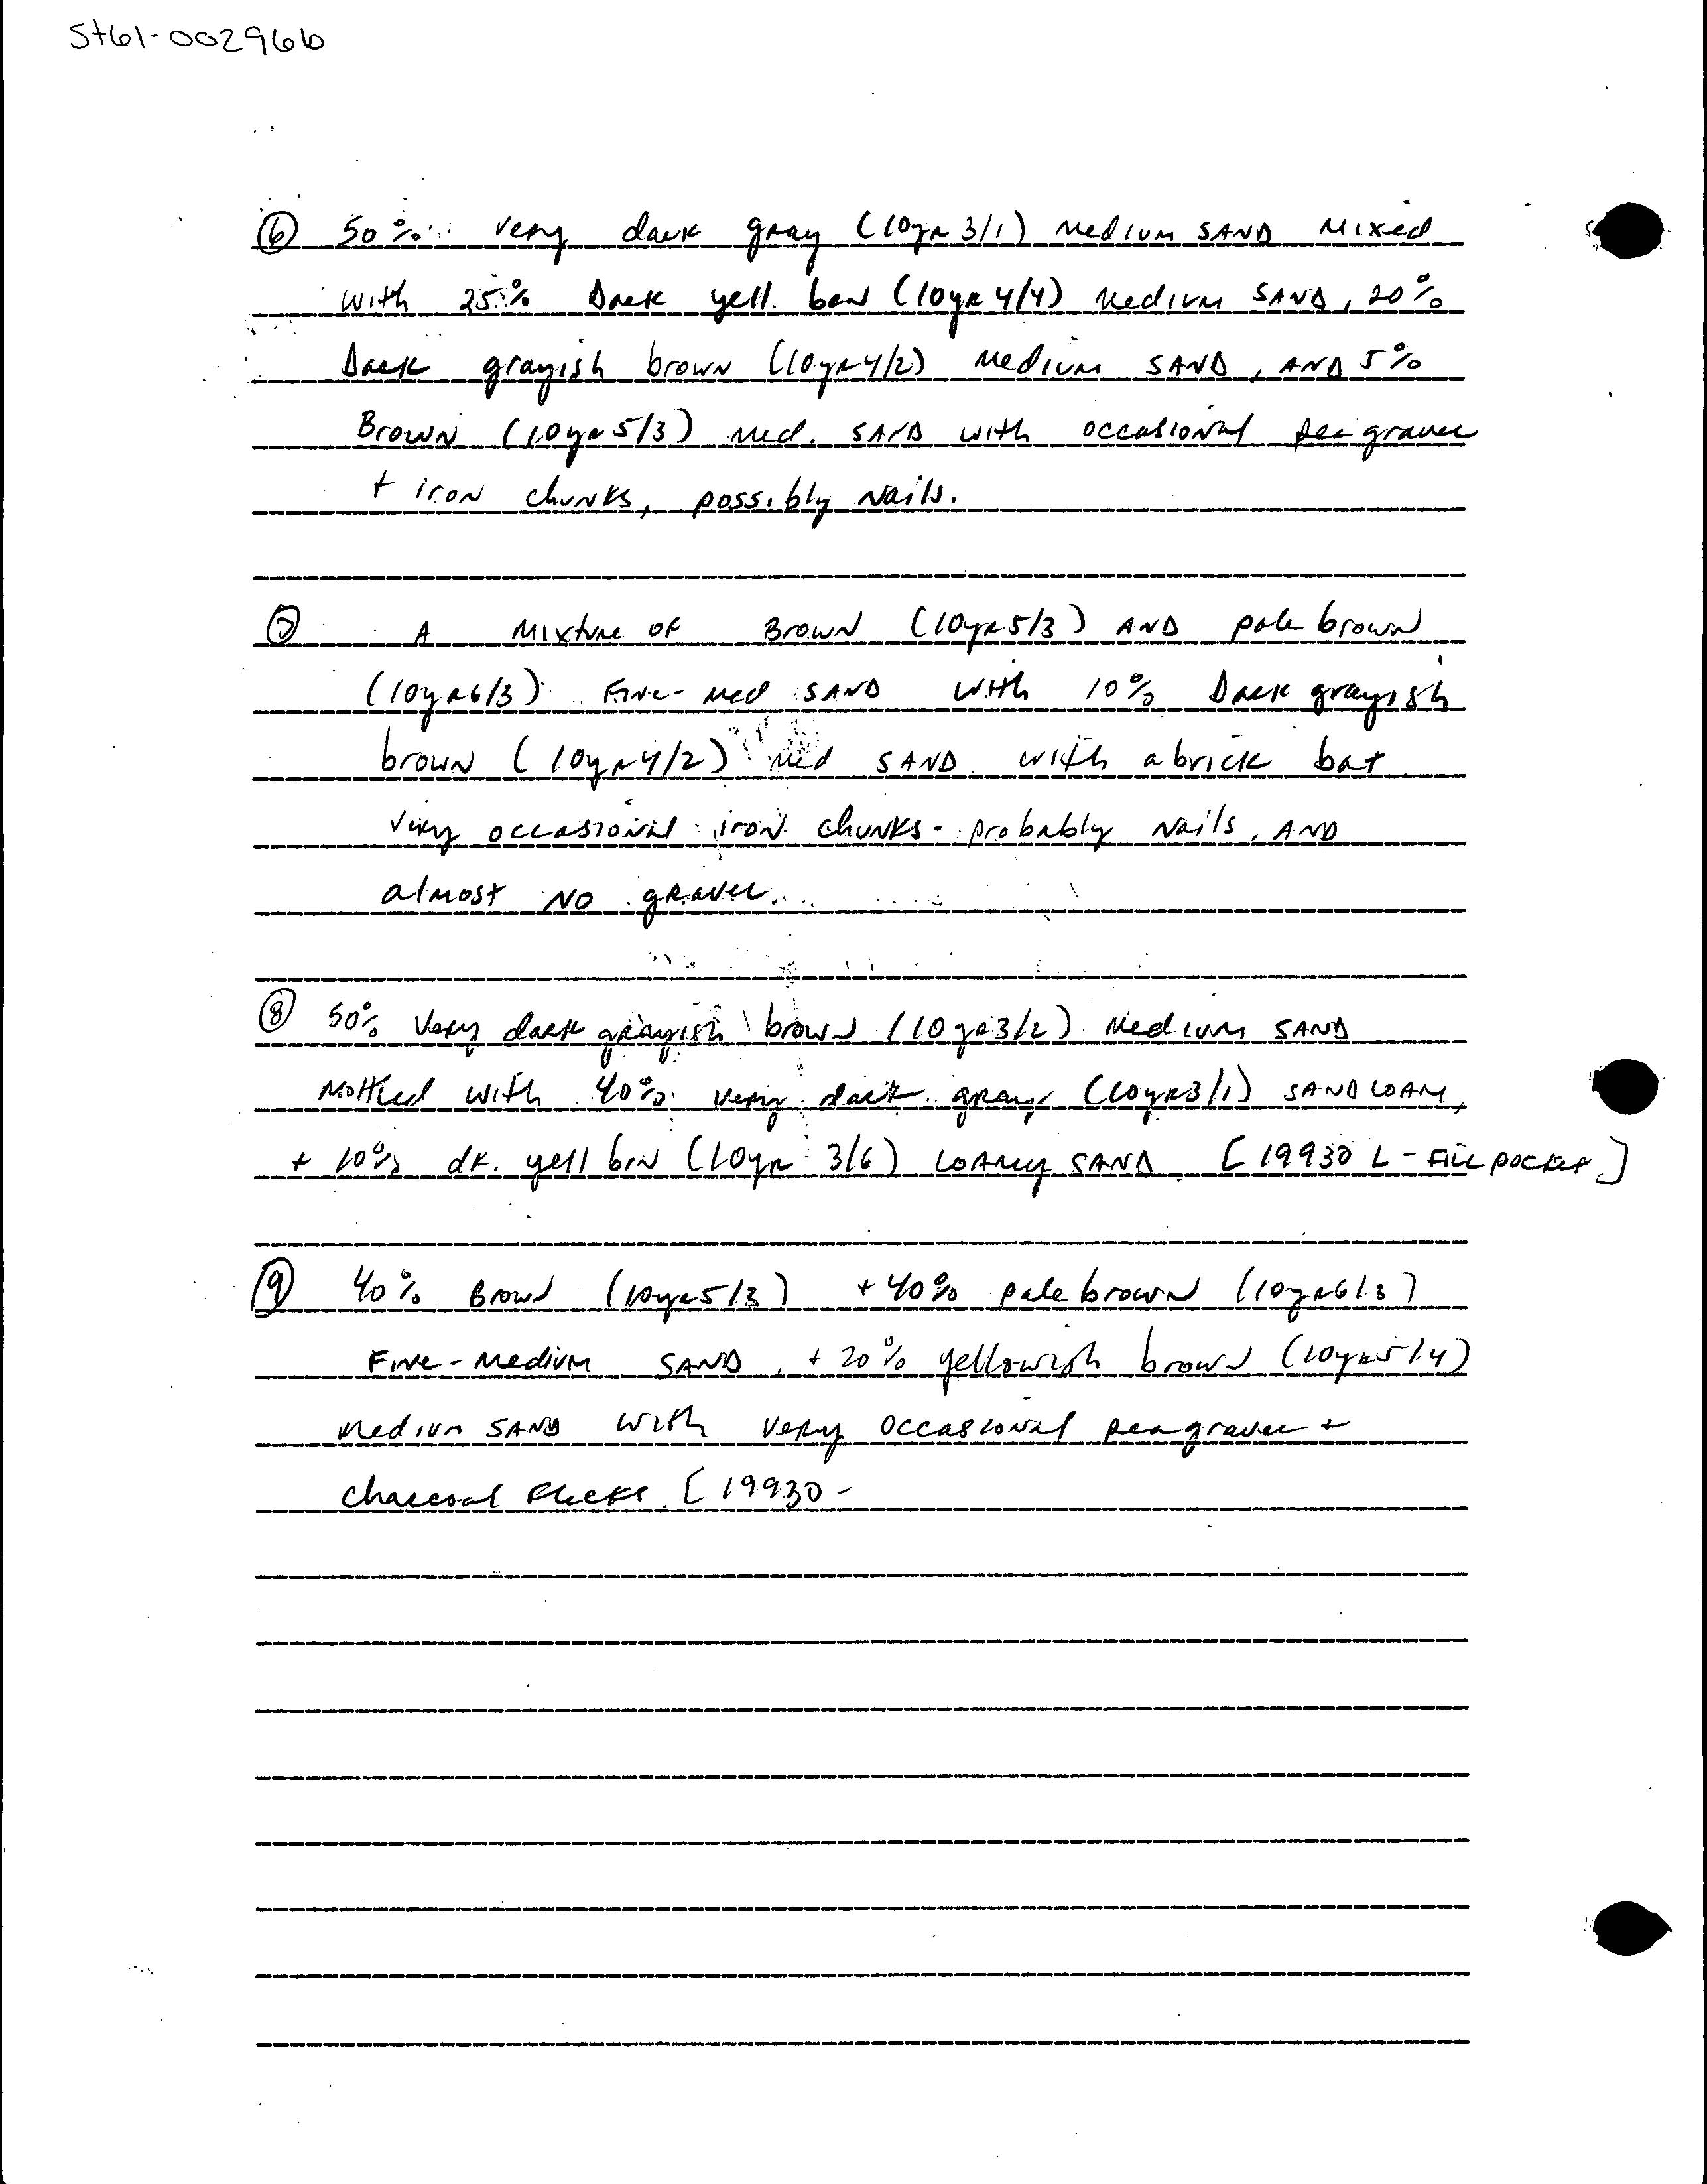 St61-002966
⑥ 50% very dark gray (10yR 3/1) medium SAND mixed
with 25% Dark yell. brn (10yR 4/4) medium SAND, 20%
Dark grayish brown (10yR 4/2) medium SAND, AND 5%
Brown (10yR 5/3) med. SAND with occasional pea gravel
+ iron chunks, possibly Nails.
⑦ A Mixture of Brown (10yR 5/3) AND pale brown
(10yR 6/3) Fine-med SAND with 10% Dark grayish
brown (10yR 4/2) med SAND with a brick bat
very occasional iron chunks - probably Nails, AND
almost NO gravel.
⑧ 50% Very dark grayish brown (10yR 3/2) Medium SAND
Mottled with 40% very dark gray (10yR 3/1) SAND LOAM,
+ 10% dk. yell brn (10yR 3/6) LOAMY SAND [19930 L - Fill pocket]
⑨ 40% Brown (10yR 5/3) + 40% pale brown (10yR 6/3)
Fine-Medium SAND, + 20% yellowish brown (10yR 5/4)
Medium SAND with very occasional pea gravel +
charcoal Flecks [19930 -